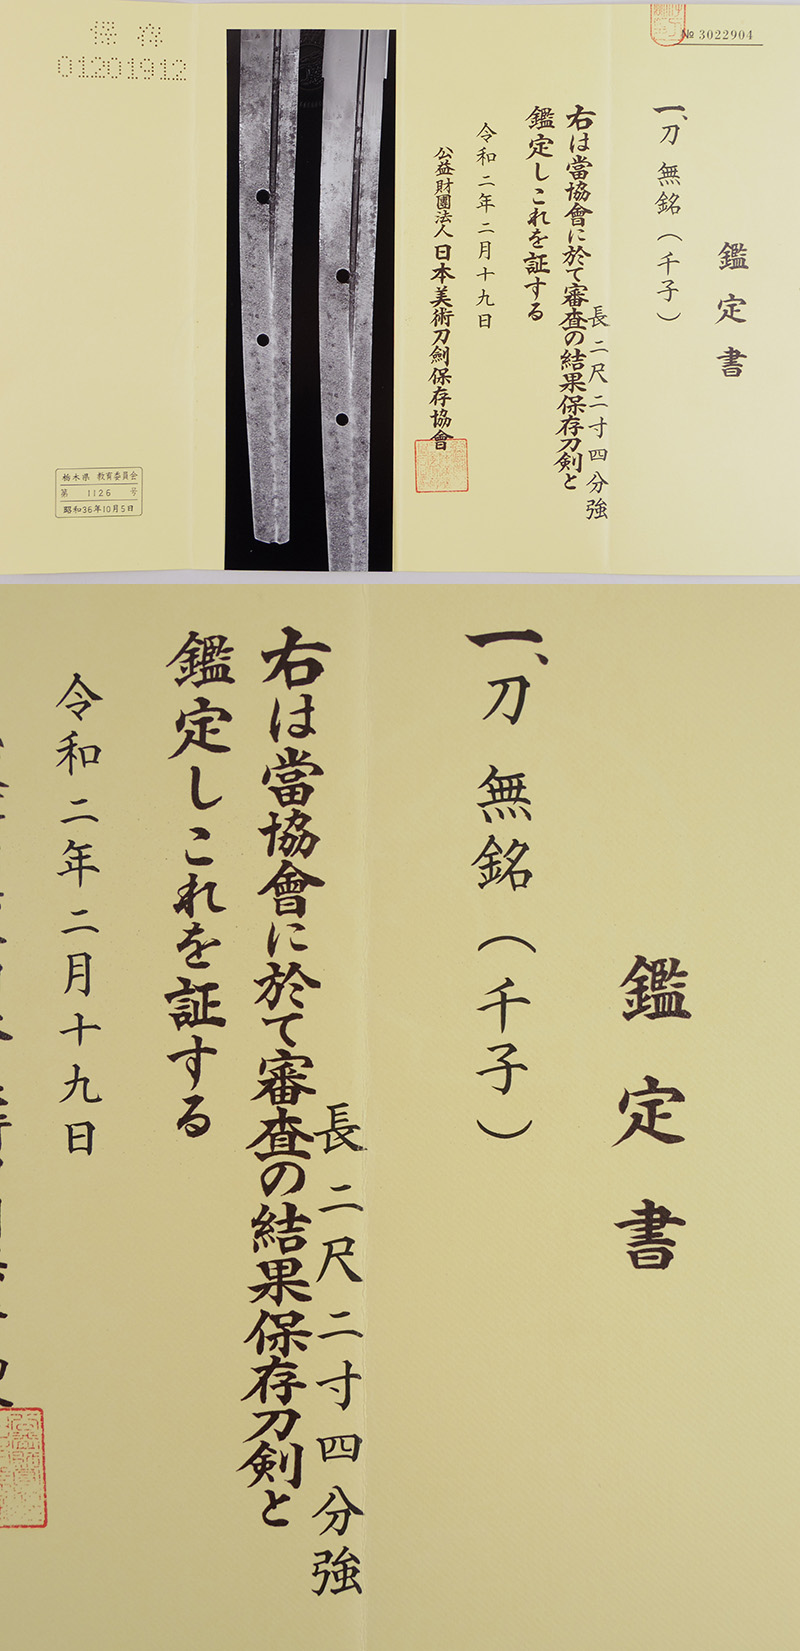 № 3022904
鑑定書
一、刀 無銘（千子）
長二尺二寸四分強
右は當協會に於て審査の結果保存刀剣と
鑑定しこれを証する
令和二年二月十九日
公益財團法人日本美術刀劍保存協會
保存
01201912
栃木県 教育委員会
第 1126 号
昭和36年10月5日
鑑定書
一、刀 無銘（千子）
長二尺二寸四分強
右は當協會に於て審査の結果保存刀剣と
鑑定しこれを証する
令和二年二月十九日